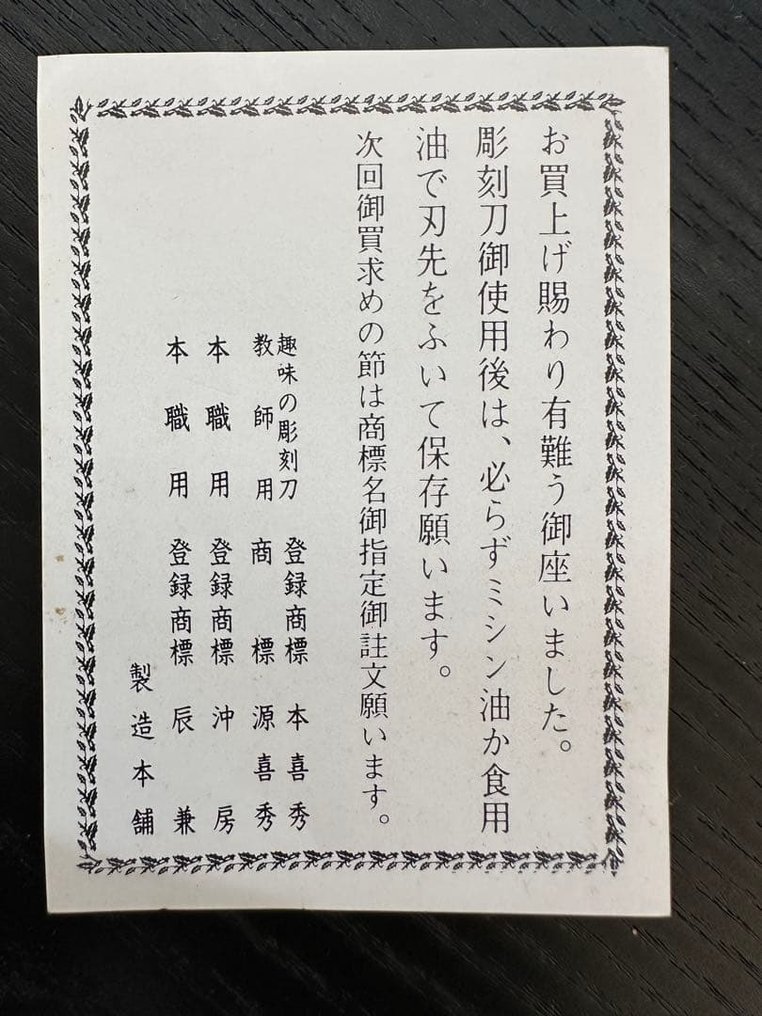 お買上げ賜わり有難う御座いました。
彫刻刀御使用後は、必らずミシン油か食用
油で刃先をふいて保存願います。
次回御買求めの節は商標名御指定御註文願います。
趣味の彫刻刀 登録商標 本喜秀
教師用 商標 源喜秀
本職用 登録商標 沖房
本職用 登録商標 辰兼
製造本舗